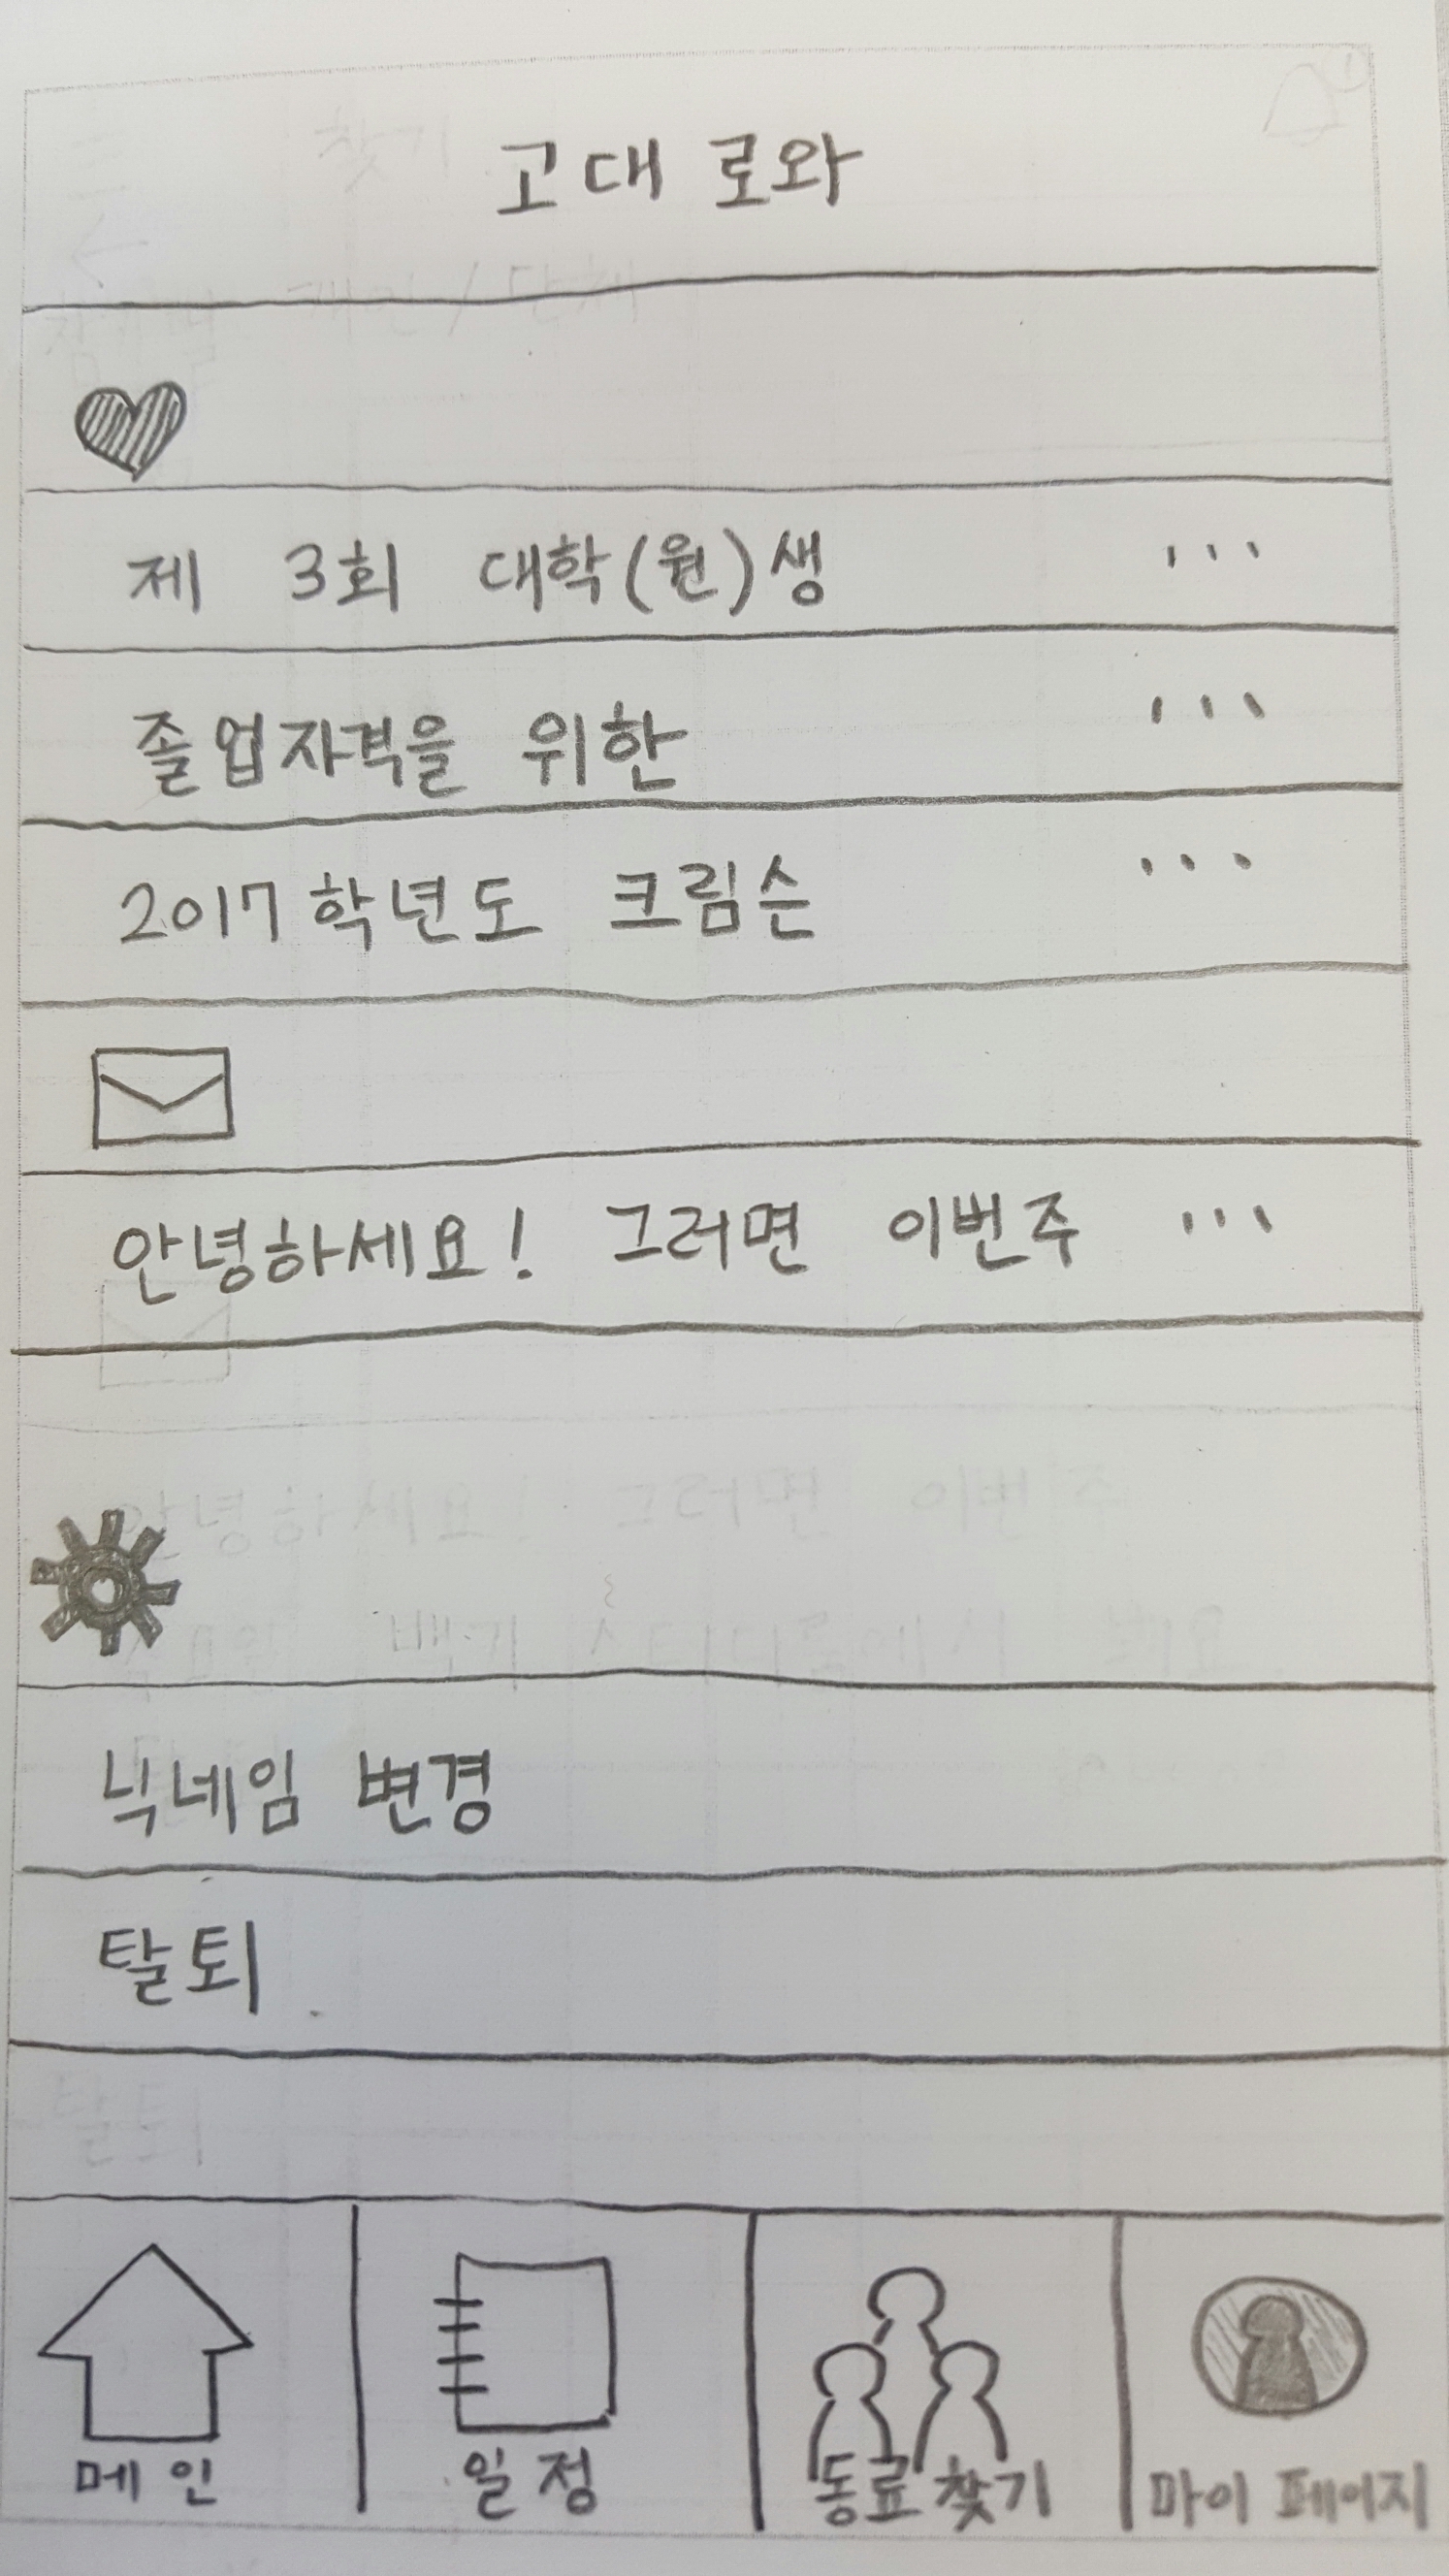 고대 로와
제 3회 대학(원)생 ...
졸업자격을 위한 ...
2017학년도 크림슨 ...
안녕하세요! 그러면 이번주 ...
닉네임 변경
탈퇴
메인 일정 동료 찾기 마이 페이지